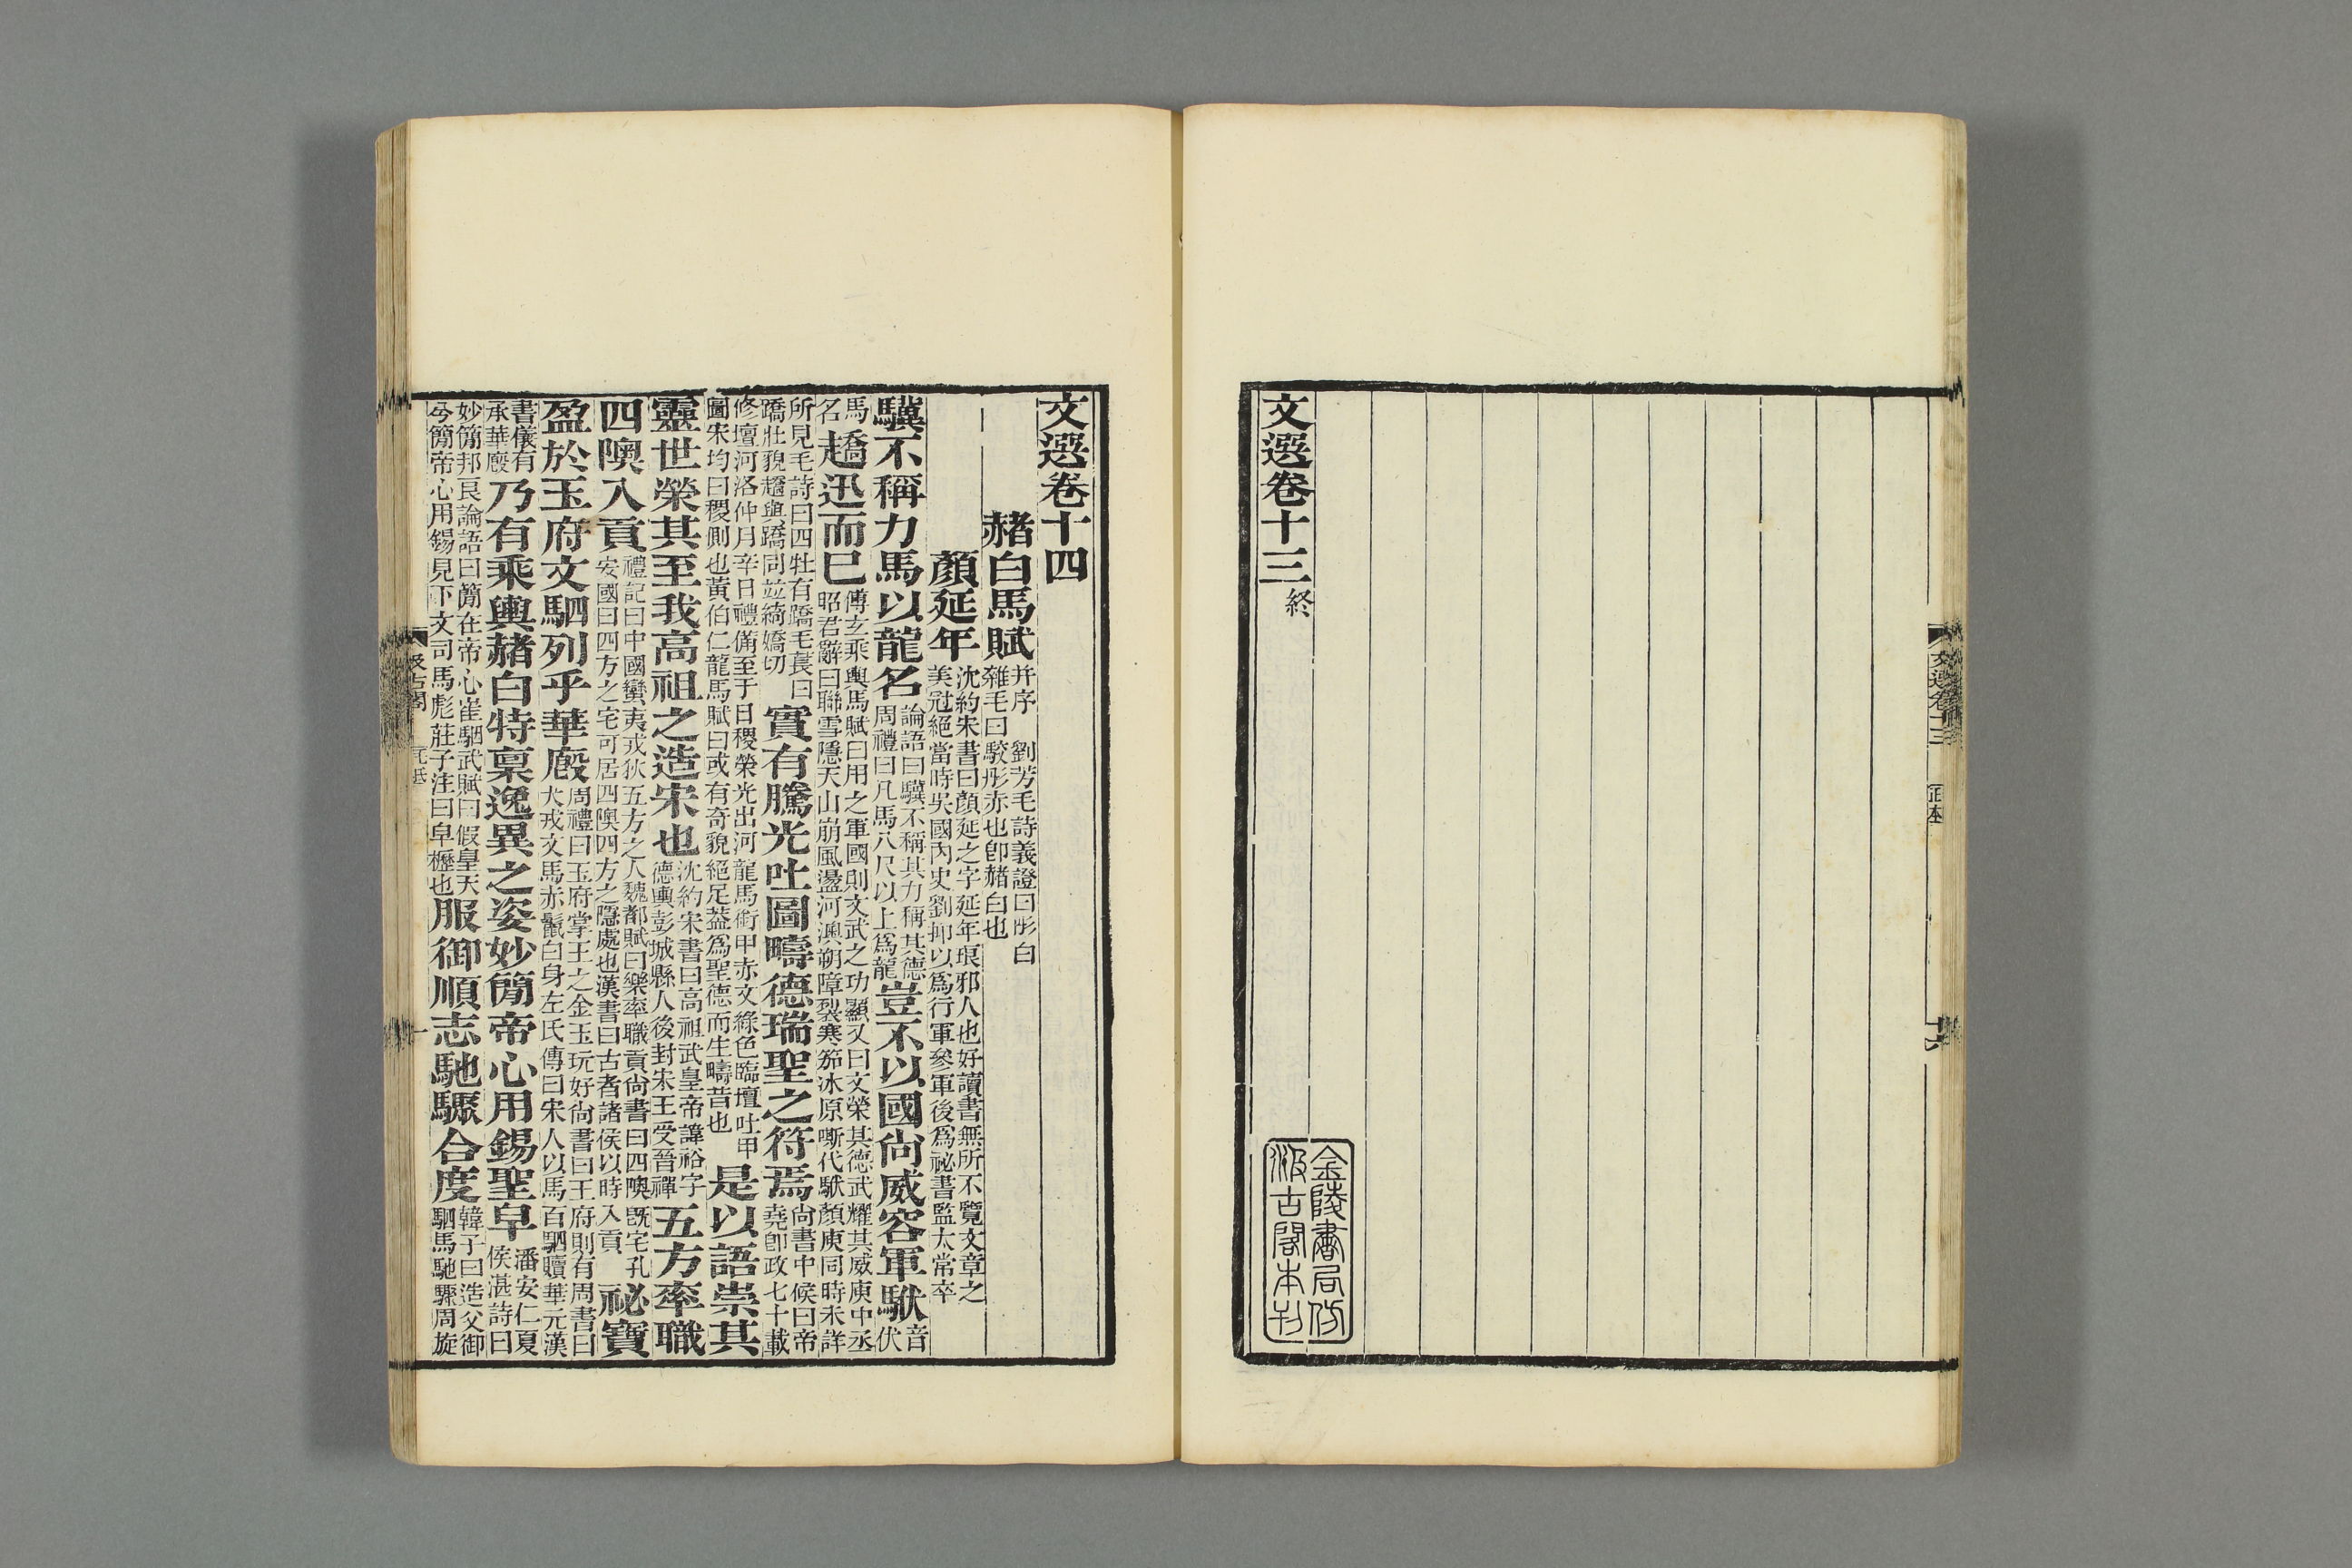 文選卷十三
十六
文選卷十三終
金陵書局仿
汲古閣本刊
文選卷十四
赭白馬賦并序 劉芳毛詩義證曰彤白
雜毛曰駁彤赤也卽赭白也
顏延年沈約宋書曰顏延之字延年琅邪人也好讀書無所不覽文章之
美冠絕當時吳國內史劉抑以爲行軍參軍後爲祕書監太常卒
驥不稱力馬以龍名論語曰驥不稱其力稱其德
周禮曰凡馬八尺以上爲龍豈不以國尙威容軍馱音
伏
馬
名趫迅而已傅玄乘輿馬賦曰用之軍國則文武之功顯又曰文榮其德武耀其威庾中丞
昭君辭曰聯雪隱天山崩風盪河澳朔障裂寒笳冰原嘶代馱顏庾同時未詳
所見毛詩曰四牡有蹻毛萇曰
蹻壯貌趫與蹻同並綺嬌切實有騰光吐圖疇德瑞聖之符焉尙書中候曰帝
堯卽政七十載
修壇河洛仲月辛日禮備至于日稷榮光出河龍馬銜甲赤文綠色臨壇吐甲
圖宋均曰稷側也黃伯仁龍馬賦曰或有奇貌絕足蓋爲聖德而生疇昔也是以語崇其
靈世榮其至我高祖之造宋也沈約宋書曰高祖武皇帝諱裕字
德輿彭城縣人後封宋王受晉禪五方率職
四隩入貢禮記曰中國蠻夷戎狄五方之人魏都賦曰樂率職貢尙書曰四隩旣宅孔
安國曰四方之宅可居四隩四方之隱處也漢書曰古者諸侯以時入貢祕寶
盈於玉府文駟列乎華廄周禮曰玉府掌王之金玉玩好尙書曰王府則有周書曰
犬戎文馬赤鬣白身左氏傳曰宋人以馬百駟贖華元漢
書儀有
承華廄乃有乘輿赭白特稟逸異之姿妙簡帝心用錫聖皁潘安仁夏
侯湛詩曰
妙簡邦良論語曰簡在帝心崔駰武賦曰假皇天
兮簡帝心用錫見下文司馬彪莊子注曰皁櫪也服御順志馳驟合度韓子曰造父御
駟馬馳驟周旋